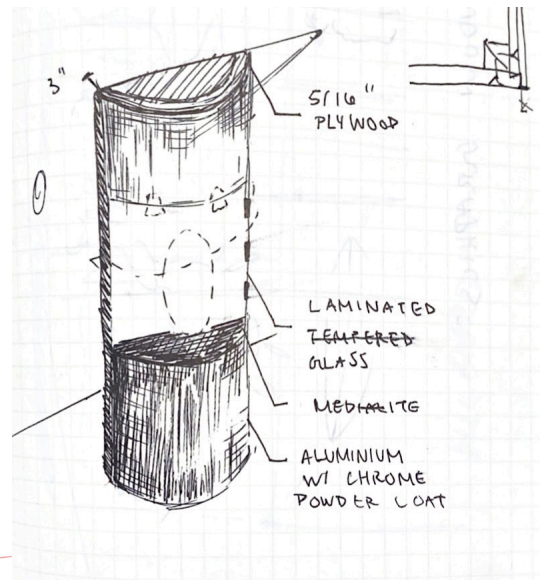 3"
5/16"
PLYWOOD
LAMINATED
TEMPERED
GLASS
MEDIALITE
ALUMINIUM
W/ CHROME
POWDER COAT